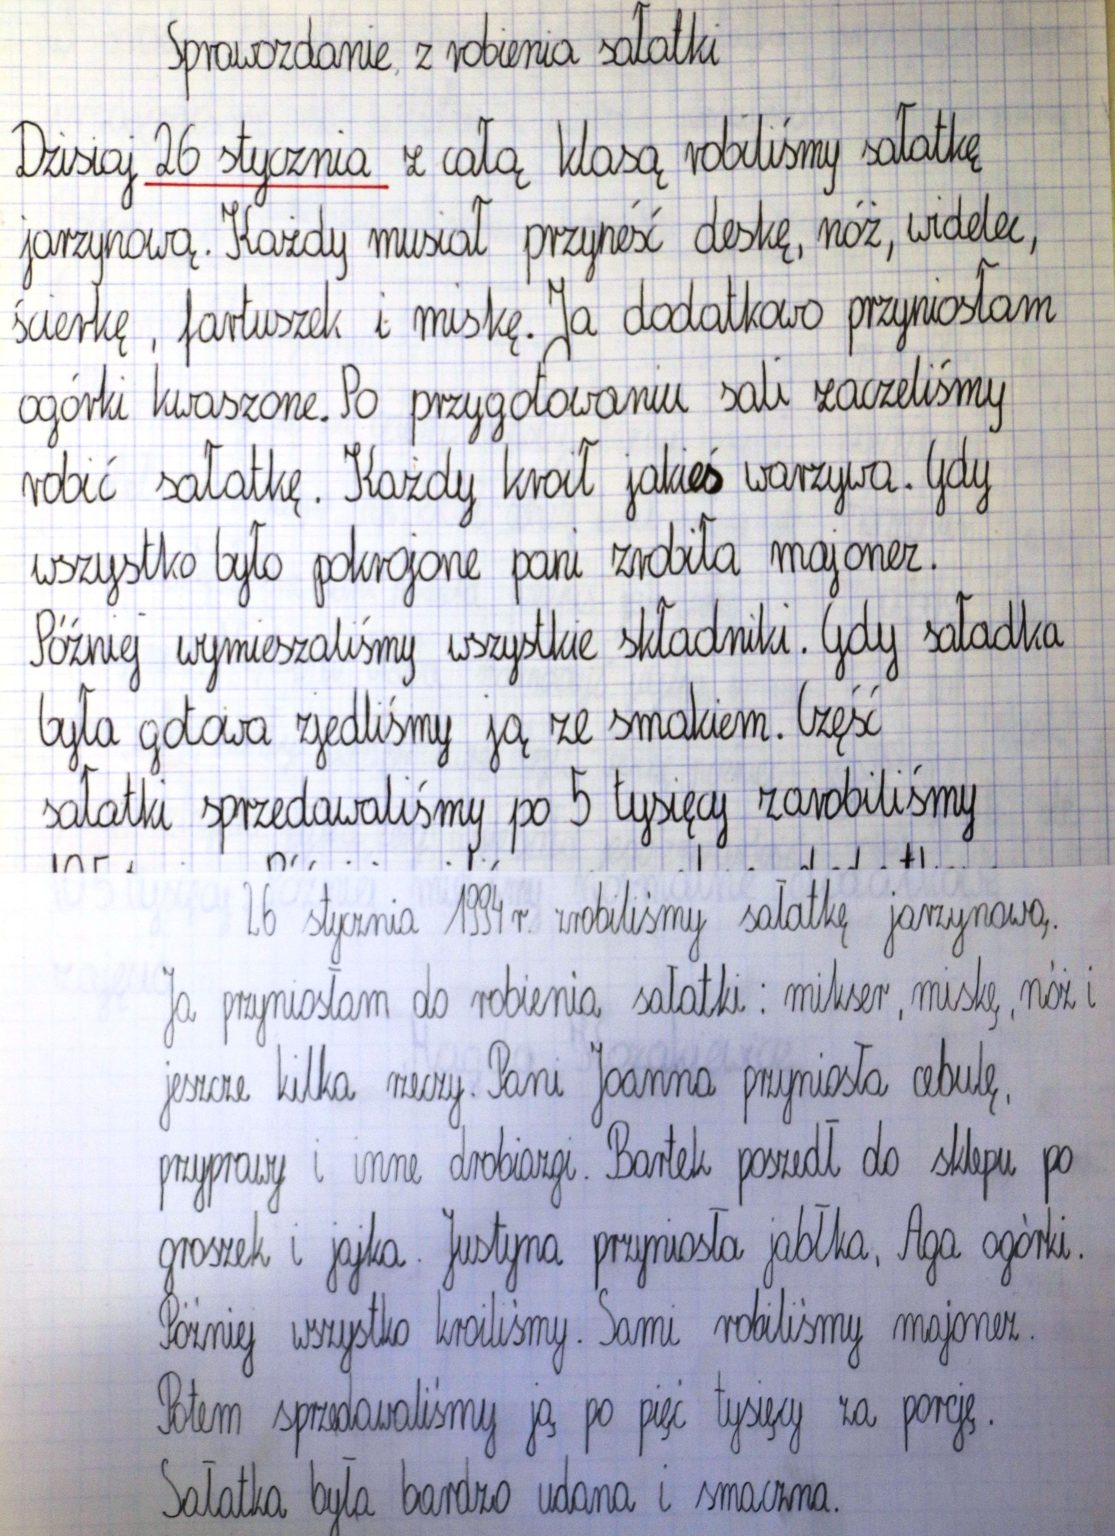 Sprawozdanie z robienia sałatki
Dzisiaj 26 stycznia z całą klasą robiliśmy sałatkę
jarzynową. Każdy musiał przynieść deskę, nóż, widelec,
ścierkę, fartuszek i miskę. Ja dodatkowo przyniosłam
ogórki kwaszone. Po przygotowaniu sali zaczeliśmy
robić sałatkę. Każdy kroił jakieś warzywa. Gdy
wszystko było pokrojone pani zrobiła majonez.
Później wymieszaliśmy wszystkie składniki. Gdy saładka
była gotowa zjedliśmy ją ze smakiem. Część
sałatki sprzedawaliśmy po 5 tysięcy zarobiliśmy
26 stycznia 1994 r. zrobiliśmy sałatkę jarzynową.
Ja przyniosłam do robienia sałatki: mikser, miskę, nóż i
jeszcze kilka rzeczy. Pani Joanna przyniosła cebulę,
przyprawy i inne drobiazgi. Bartek poszedł do sklepu po
groszek i jajka. Justyna przyniosła jabłka, Aga ogórki.
Później wszystko kroiliśmy. Sami robiliśmy majonez.
Potem sprzedawaliśmy ją po pięć tysięcy za porcję.
Sałatka była bardzo udana i smaczna.